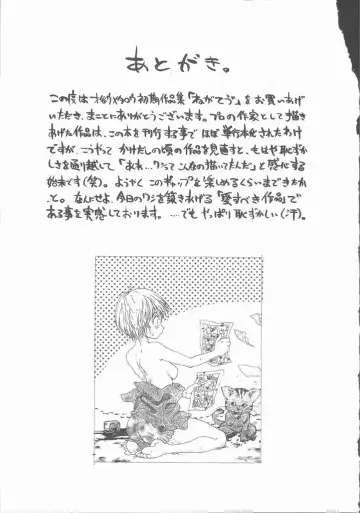 あとがき。
この度は才谷ウメタロウ初期作品集「ねがてぶ」をお買いあげ
いただき、まことにありがとうございます。プロの作家として描き
あげた作品は、この本を刊行する事でほぼ単行本化されたわけ
ですが、こうやってかけだしの頃の作品を見直すと、もはや恥ずか
しさを通り越して「あれ…ワシってこんなの描いてたんだ」と感心する
始末です(笑)。ようやくこのギャップを楽しめるくらいまできたか
と。なんにせよ、今日のワシを築きあげる「愛すべき作品」で
ある事を実感しております。…でもやっぱり恥ずかしい(汗)。